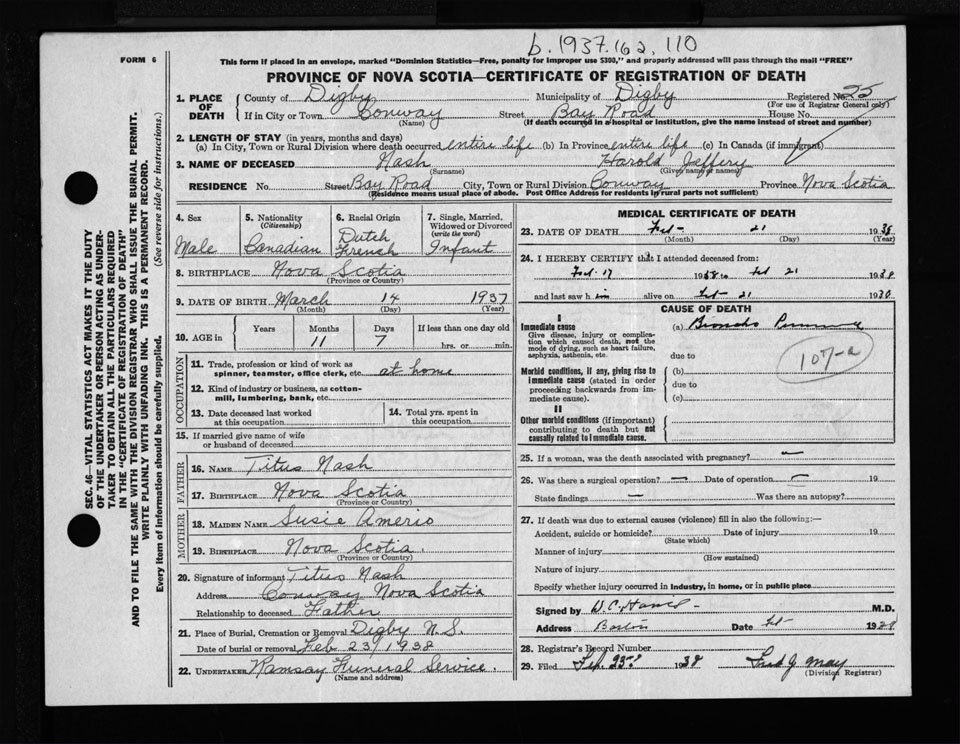 b. 1937. 162. 110
FORM 6
This form if placed in an envelope, marked "Dominion Statistics—Free, penalty for improper use $300," and properly addressed will pass through the mail "FREE"
PROVINCE OF NOVA SCOTIA—CERTIFICATE OF REGISTRATION OF DEATH
1. PLACE OF DEATH County of Digby Municipality of Digby Registered No. 25
(For use of Registrar General only)
If in City or Town Conway Street Bay Road House No.
(Name) (If death occurred in a hospital or institution, give the name instead of street and number)
2. LENGTH OF STAY (in years, months and days)
(a) In City, Town or Rural Division where death occurred entire life (b) In Province entire life (c) In Canada (if immigrant)
3. NAME OF DECEASED Nash Harold Jeffery
(Surname) (Given name or names)
RESIDENCE No. Street Bay Road City, Town or Rural Division Conway Province Nova Scotia
(Residence means usual place of abode. Post Office Address for residents in rural parts not sufficient)
SEC. 46—VITAL STATISTICS ACT MAKES IT THE DUTY
OF THE UNDERTAKER OR PERSON ACTING AS UNDER-
TAKER TO OBTAIN ALL THE PARTICULARS REQUIRED
IN THE "CERTIFICATE OF REGISTRATION OF DEATH"
AND TO FILE THE SAME WITH THE DIVISION REGISTRAR WHO SHALL ISSUE THE BURIAL PERMIT.
WRITE PLAINLY WITH UNFADING INK. THIS IS A PERMANENT RECORD.
Every item of information should be carefully supplied. (See reverse side for instructions.)
4. Sex
Male
5. Nationality
(Citizenship)
Canadian
6. Racial Origin
Dutch
French
7. Single, Married,
Widowed or Divorced
(write the word)
Infant
8. BIRTHPLACE Nova Scotia
(Province or Country)
9. DATE OF BIRTH March 14 1937
(Month) (Day) (Year)
10. AGE in Years Months Days If less than one day old
11 7 hrs. or min.
OCCUPATION
11. Trade, profession or kind of work as
spinner, teamster, office clerk, etc. at home
12. Kind of industry or business, as cotton-
mill, lumbering, bank, etc.
13. Date deceased last worked
at this occupation
14. Total yrs. spent in
this occupation
15. If married give name of wife
or husband of deceased
FATHER
16. NAME Titus Nash
17. BIRTHPLACE Nova Scotia
(Province or Country)
MOTHER
18. MAIDEN NAME Susie Amerio
19. BIRTHPLACE Nova Scotia.
(Province or Country)
20. Signature of informant Titus Nash
Address Conway Nova Scotia
Relationship to deceased Father
21. Place of Burial, Cremation or Removal Digby N.S.
Date of burial or removal Feb 23/1938
22. UNDERTAKER Ramsay Funeral Service.
(Name and address)
MEDICAL CERTIFICATE OF DEATH
23. DATE OF DEATH Feb- 21 1938
(Month) (Day) (Year)
24. I HEREBY CERTIFY that I attended deceased from:
Feb. 17 1938 to Feb 21 1938
and last saw him alive on Feb- 21 1930
CAUSE OF DEATH
I
Immediate cause
Give disease, injury or complica-
tion which caused death, not the
mode of dying, such as heart failure,
asphyxia, asthenia, etc.
(a) Broncho
due to
107-a
Morbid conditions, if any, giving rise to
immediate cause (stated in order
proceeding backwards from im-
mediate cause).
(b)
due to
(c)
II
Other morbid conditions (if important)
contributing to death but not
causally related to immediate cause.
25. If a woman, was the death associated with pregnancy? —
26. Was there a surgical operation? — Date of operation — 19
State findings — Was there an autopsy?
27. If death was due to external causes (violence) fill in also the following:—
Accident, suicide or homicide? Date of injury 19
(State which)
Manner of injury
(How sustained)
Nature of injury
Specify whether injury occurred in industry, in home, or in public place
Signed by M.D.
Address Date Feb- 1938
28. Registrar's Record Number
29. Filed Feb. 23rd 1938 May
(Division Registrar)